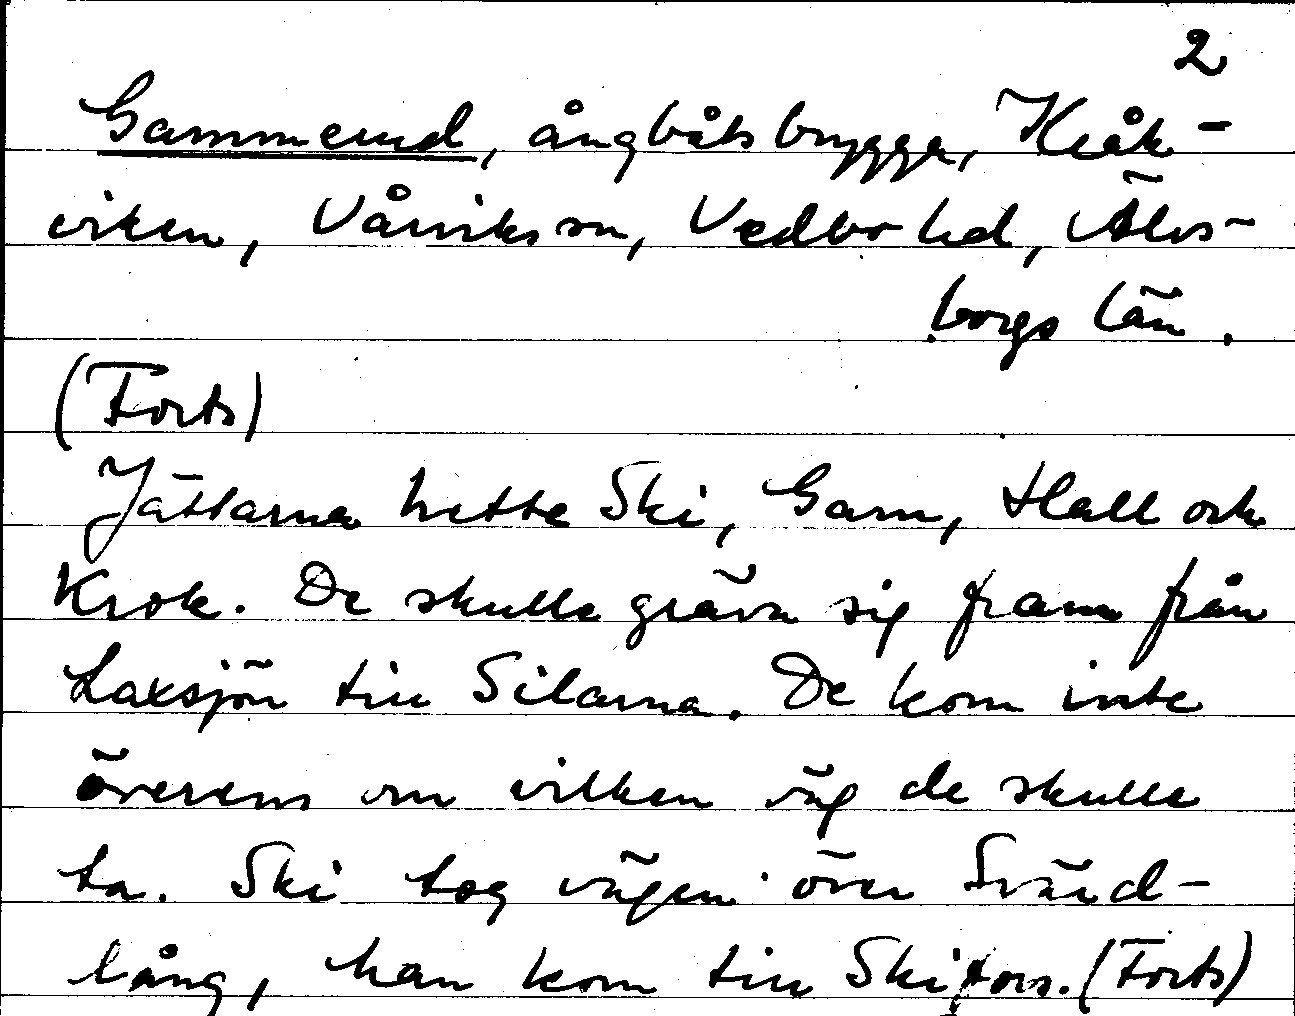 2
Gammerud, ångbåtsbrygga, Kråk-
viken, Vårviks sn, Vedbo hd, Älvs-
borgs län.
(Forts)
Jättarna hette Ski, Garn, Hall och
Krok. De skulle gräva sig fram från
Laxsjön till Silarna. De kom inte
överens om vilken väg de skulle
ta. Ski tog vägen över Svärd-
lång, han kom till Skifors. (Forts)